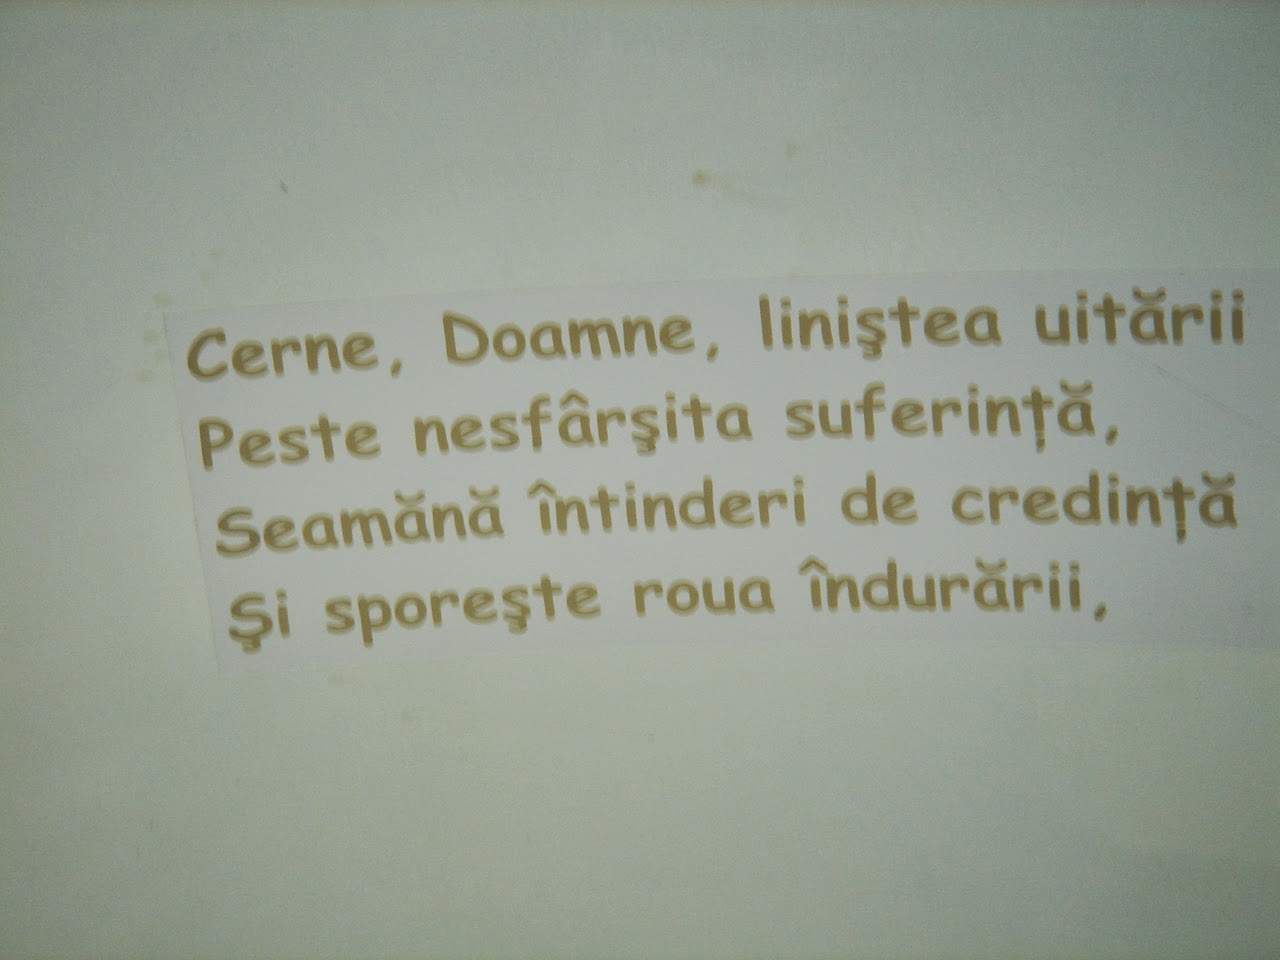 Cerne, Doamne, liniştea uitării
Peste nesfârşita suferinţă,
Seamănă întinderi de credinţă
Şi sporeşte roua îndurării,